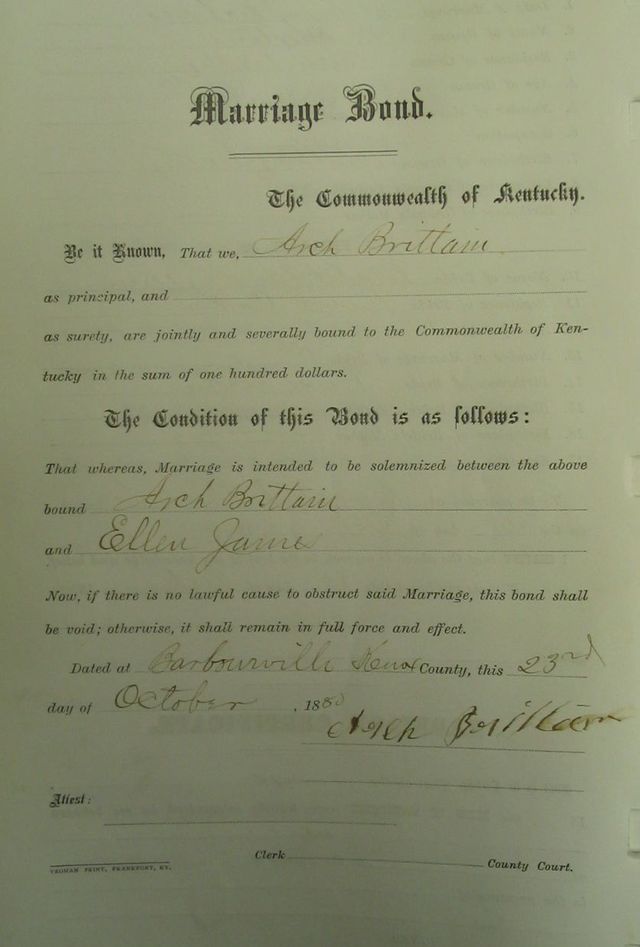 Marriage Bond.
The Commonwealth of Kentucky.
Be it Known, That we, Arch Brittain
as principal, and
as surety, are jointly and severally bound to the Commonwealth of Ken-
tucky in the sum of one hundred dollars.
The Condition of this Bond is as follows:
That whereas, Marriage is intended to be solemnized between the above
bound Arch Brittain
and Ellen James
Now, if there is no lawful cause to obstruct said Marriage, this bond shall
be void; otherwise, it shall remain in full force and effect.
Dated at Barbourville Knox County, this 23rd
day of October, 1880
Arch Brittain
Attest:
Clerk County Court.
YEOMAN PRINT, FRANKFORT, KY.